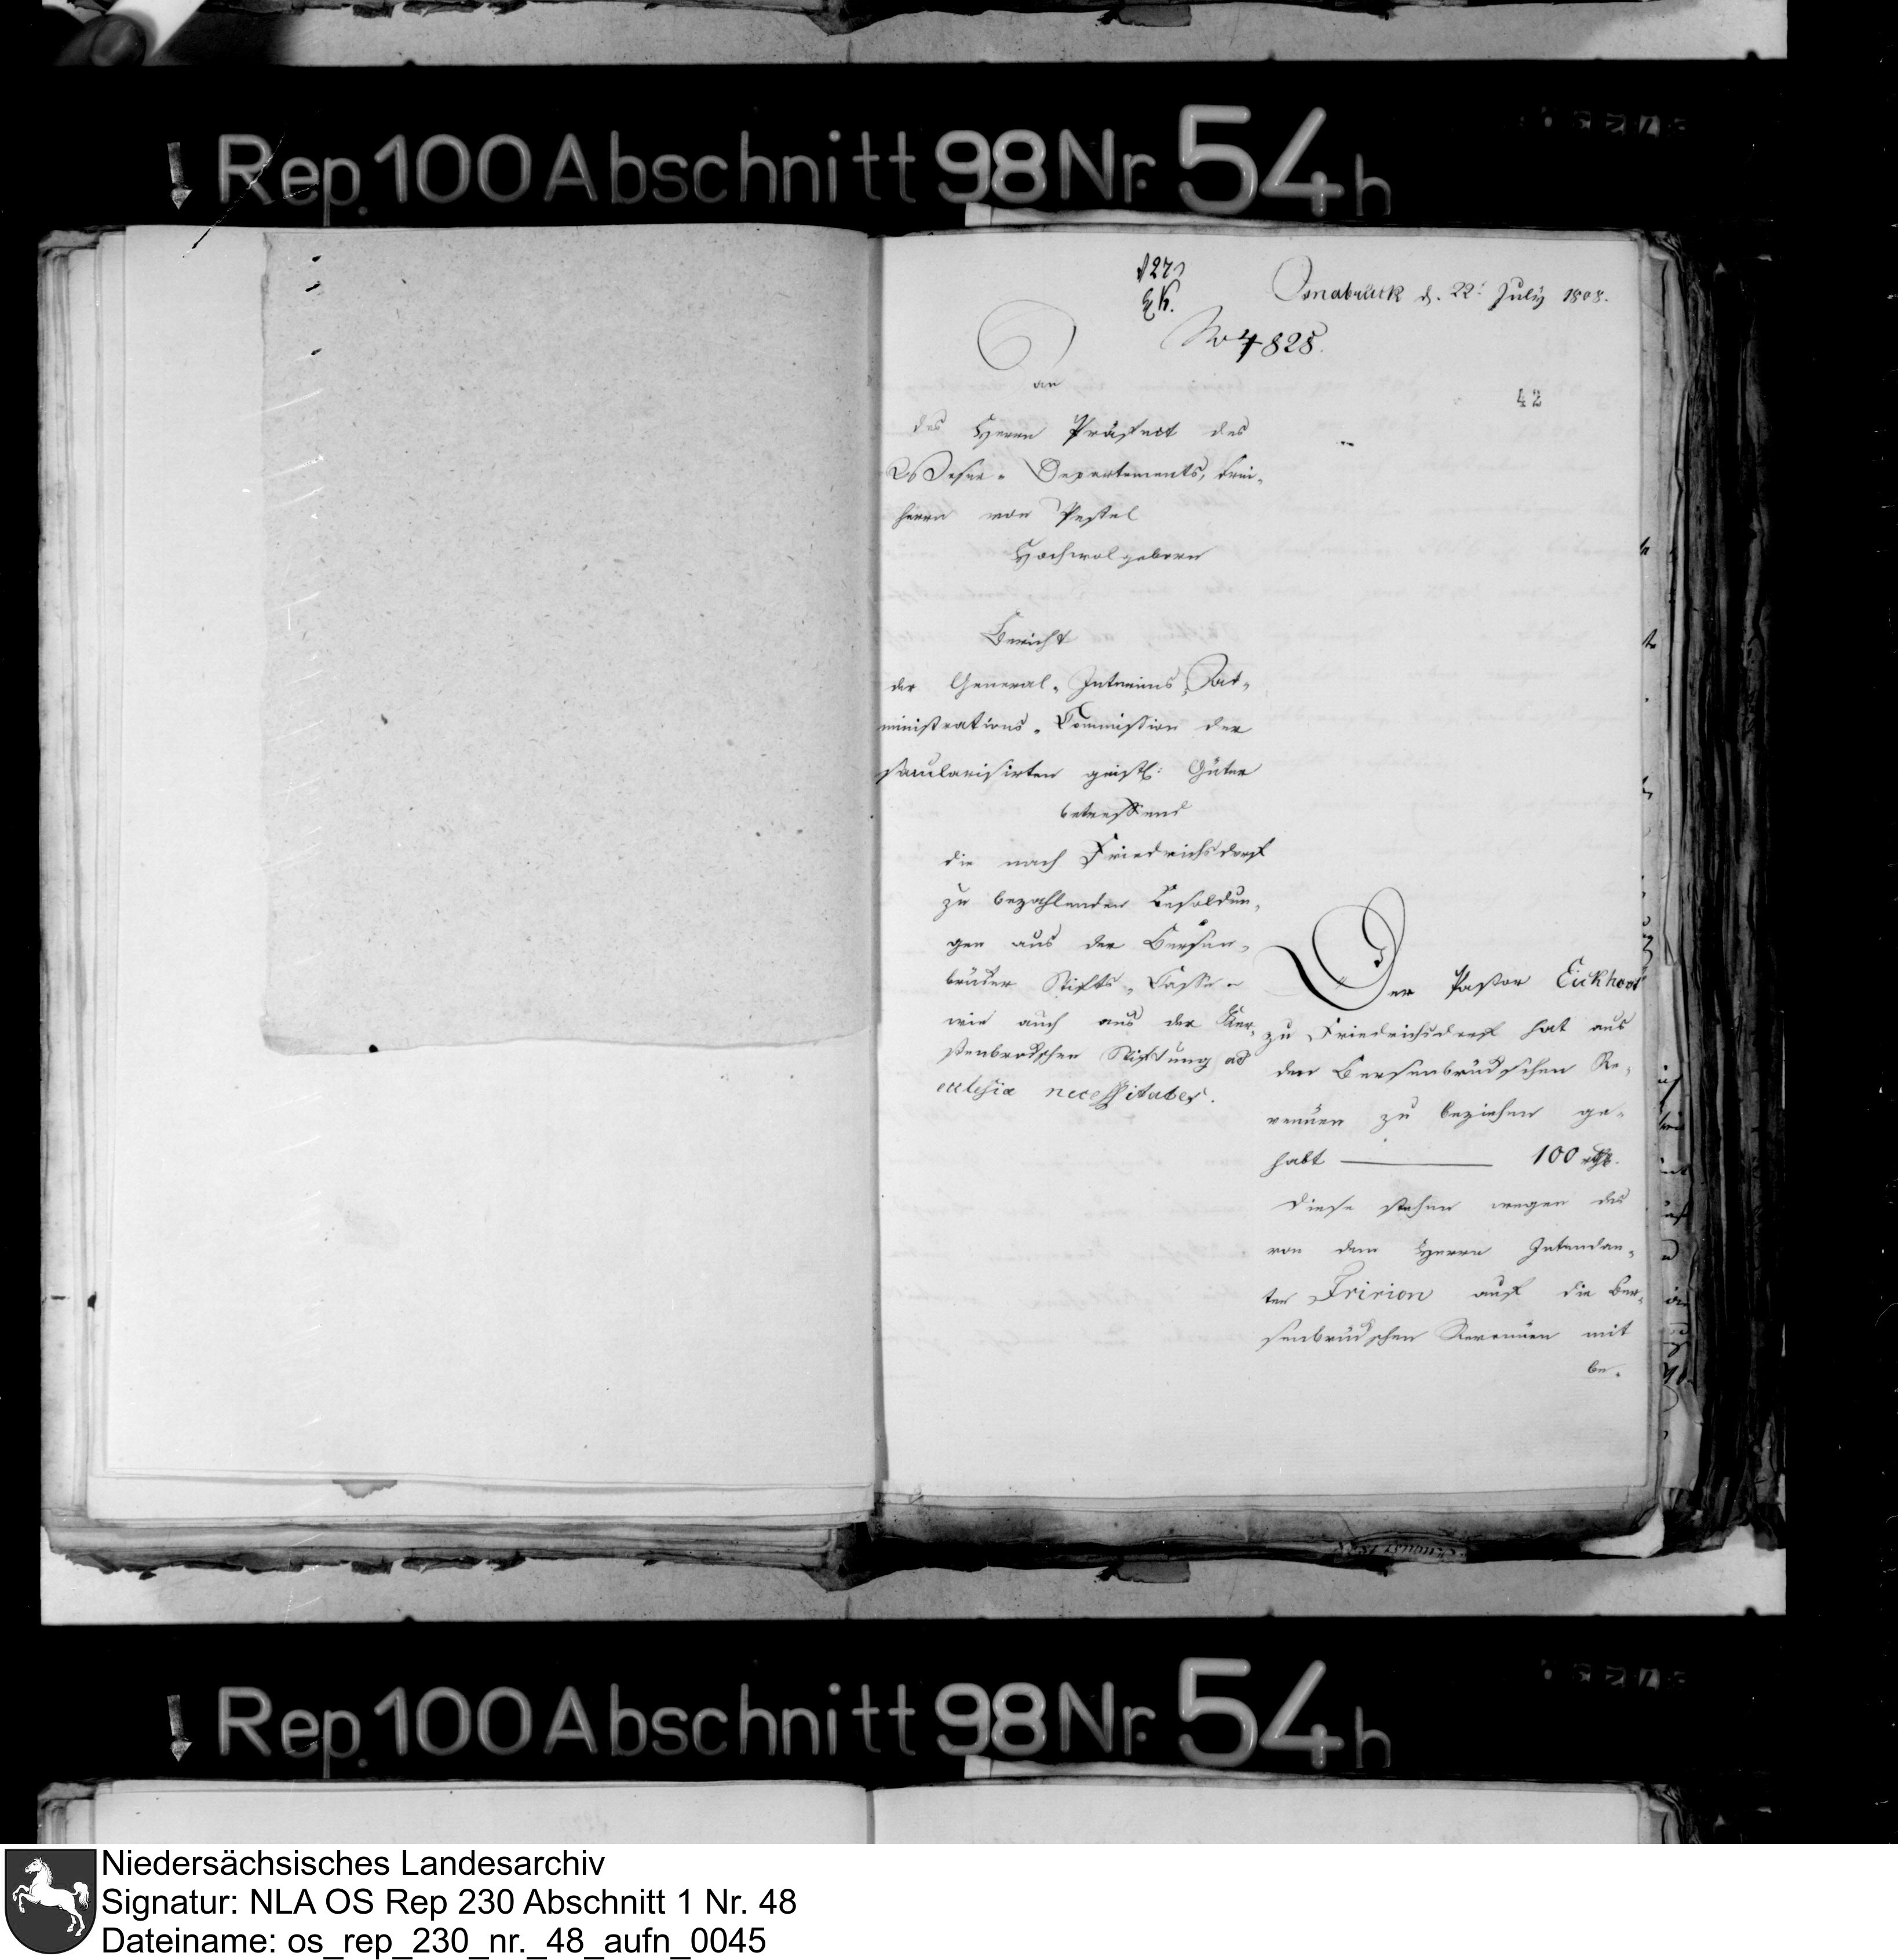 Rep. 100 Abschnitt 98 Nr. 54 h
Osnabrück d. 22t July 1808.
No 4828.
42
An
des Herrn Präfect des
Weser- Departements, Frei-
herrn von Pestel
Hochwolgeborn
Bericht
der General- Interims Ad-
ministrations- Commission der
säcularisirten geistl: Güter
betreffend
die nach Friedrichsdorf
zu bezahlenden Besoldun-
gen aus der Bersen-
brücker Stifts- Casse
wie auch aus der Ker-
ßenbrockschen Stiftung ad
ecclesiæ necessitates.
Der Pastor Eickhoof
zu Friedrichsdorf hat aus
den Bersenbrückschen Re-
venüen zu beziehen ge-
habt ——— 100 rthl.
Diese stehen wegen des
von dem Herrn Intendan-
ten Fririon auf die Ber-
senbrückschen Revenüen mit
be-
Rep. 100 Abschnitt 98 Nr. 54 h
Niedersächsisches Landesarchiv
Signatur: NLA OS Rep 230 Abschnitt 1 Nr. 48
Dateiname: os_rep_230_nr._48_aufn_0045